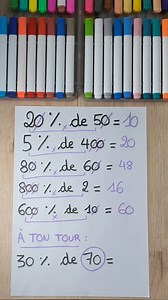 20 % de 50 = 10
5 % de 400 = 20
80 % de 60 = 48
800 % de 2 = 16
600 % de 10 = 60
À TON TOUR :
30 % de 70 =